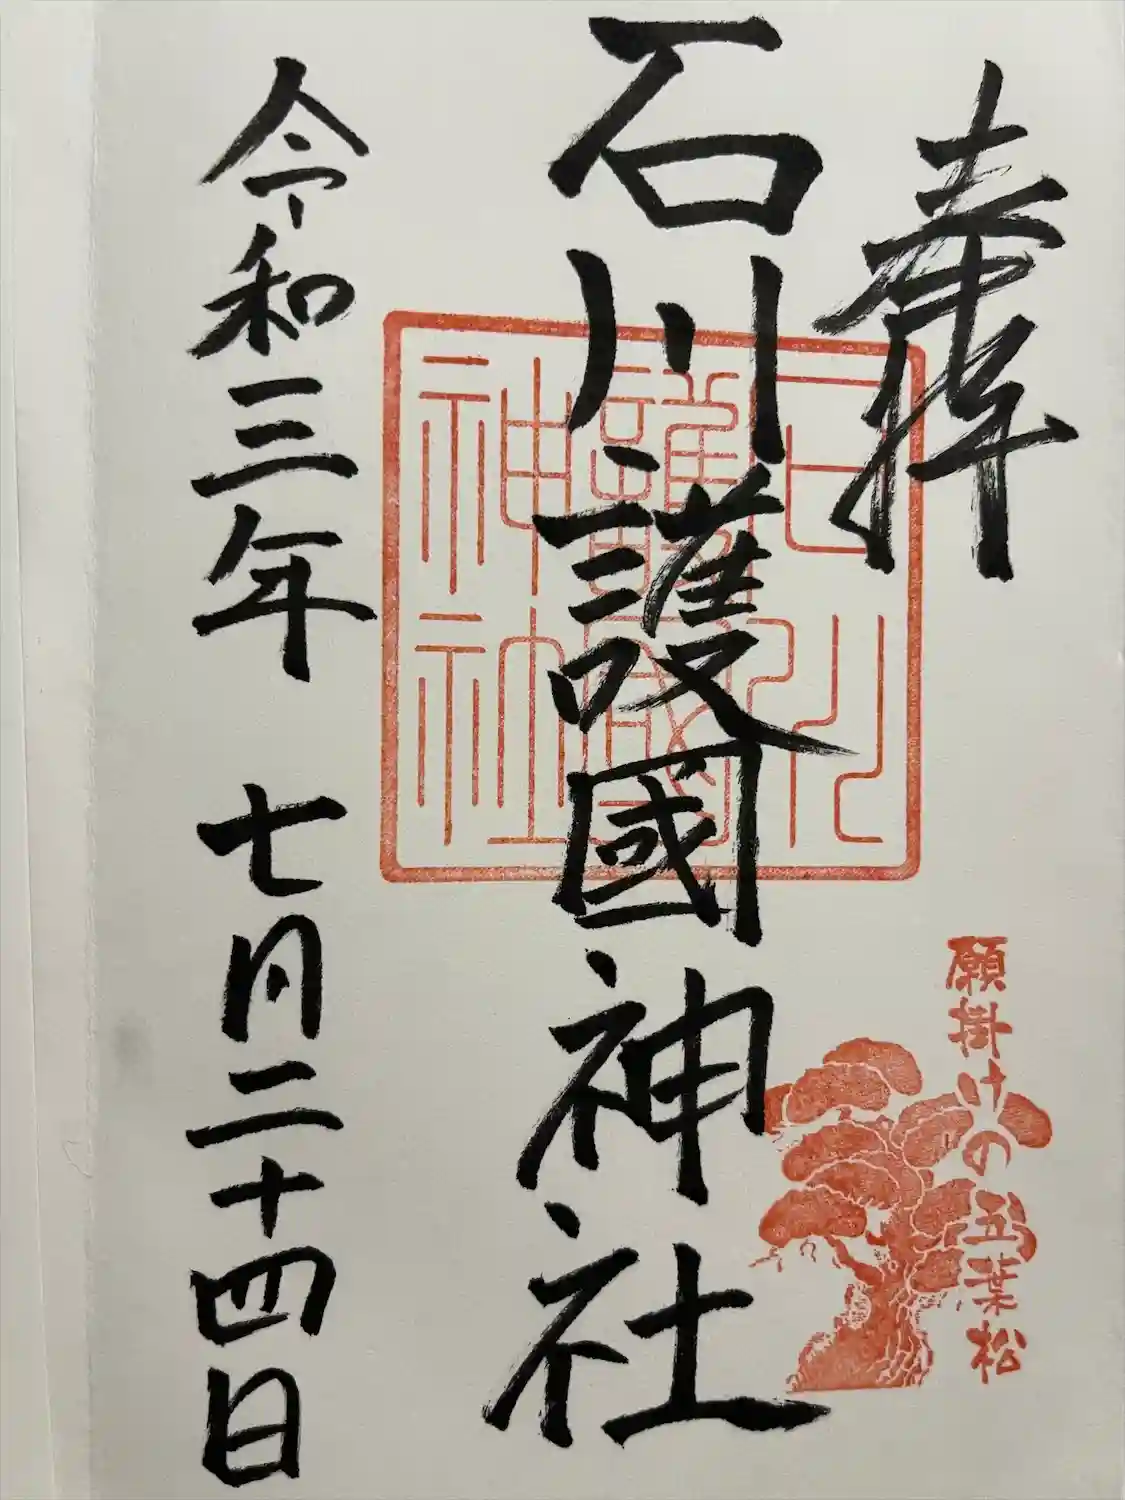 奉拝
石川護國神社
石川護國神社
願掛けの五葉松
令和三年 七月二十四日